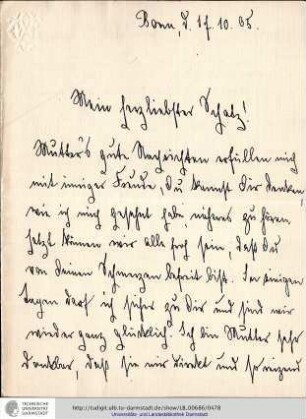 Bonn, d. 17. 10. 05.
Mein herzliebster Schatz!
Mutter's gute Nachrichten erfüllen mich
mit inniger Freude, Du kannst Dir denken
wie ich mich gesehnt habe, näheres zu hören
jetzt können wir alle froh sein, daß Du
von Deinen Schmerzen befreit bist. In einigen
Tagen darf ich sicher zu Dir und sind wir
wieder ganz glücklich. Ich bin Mutter sehr
dankbar, daß sie mir direkt und so
TECHNISCHE
UNIVERSITÄT
DARMSTADT
http://tudigit.ulb.tu-darmstadt.de/show/LB_00686/0478
Universitäts- und Landesbibliothek Darmstadt